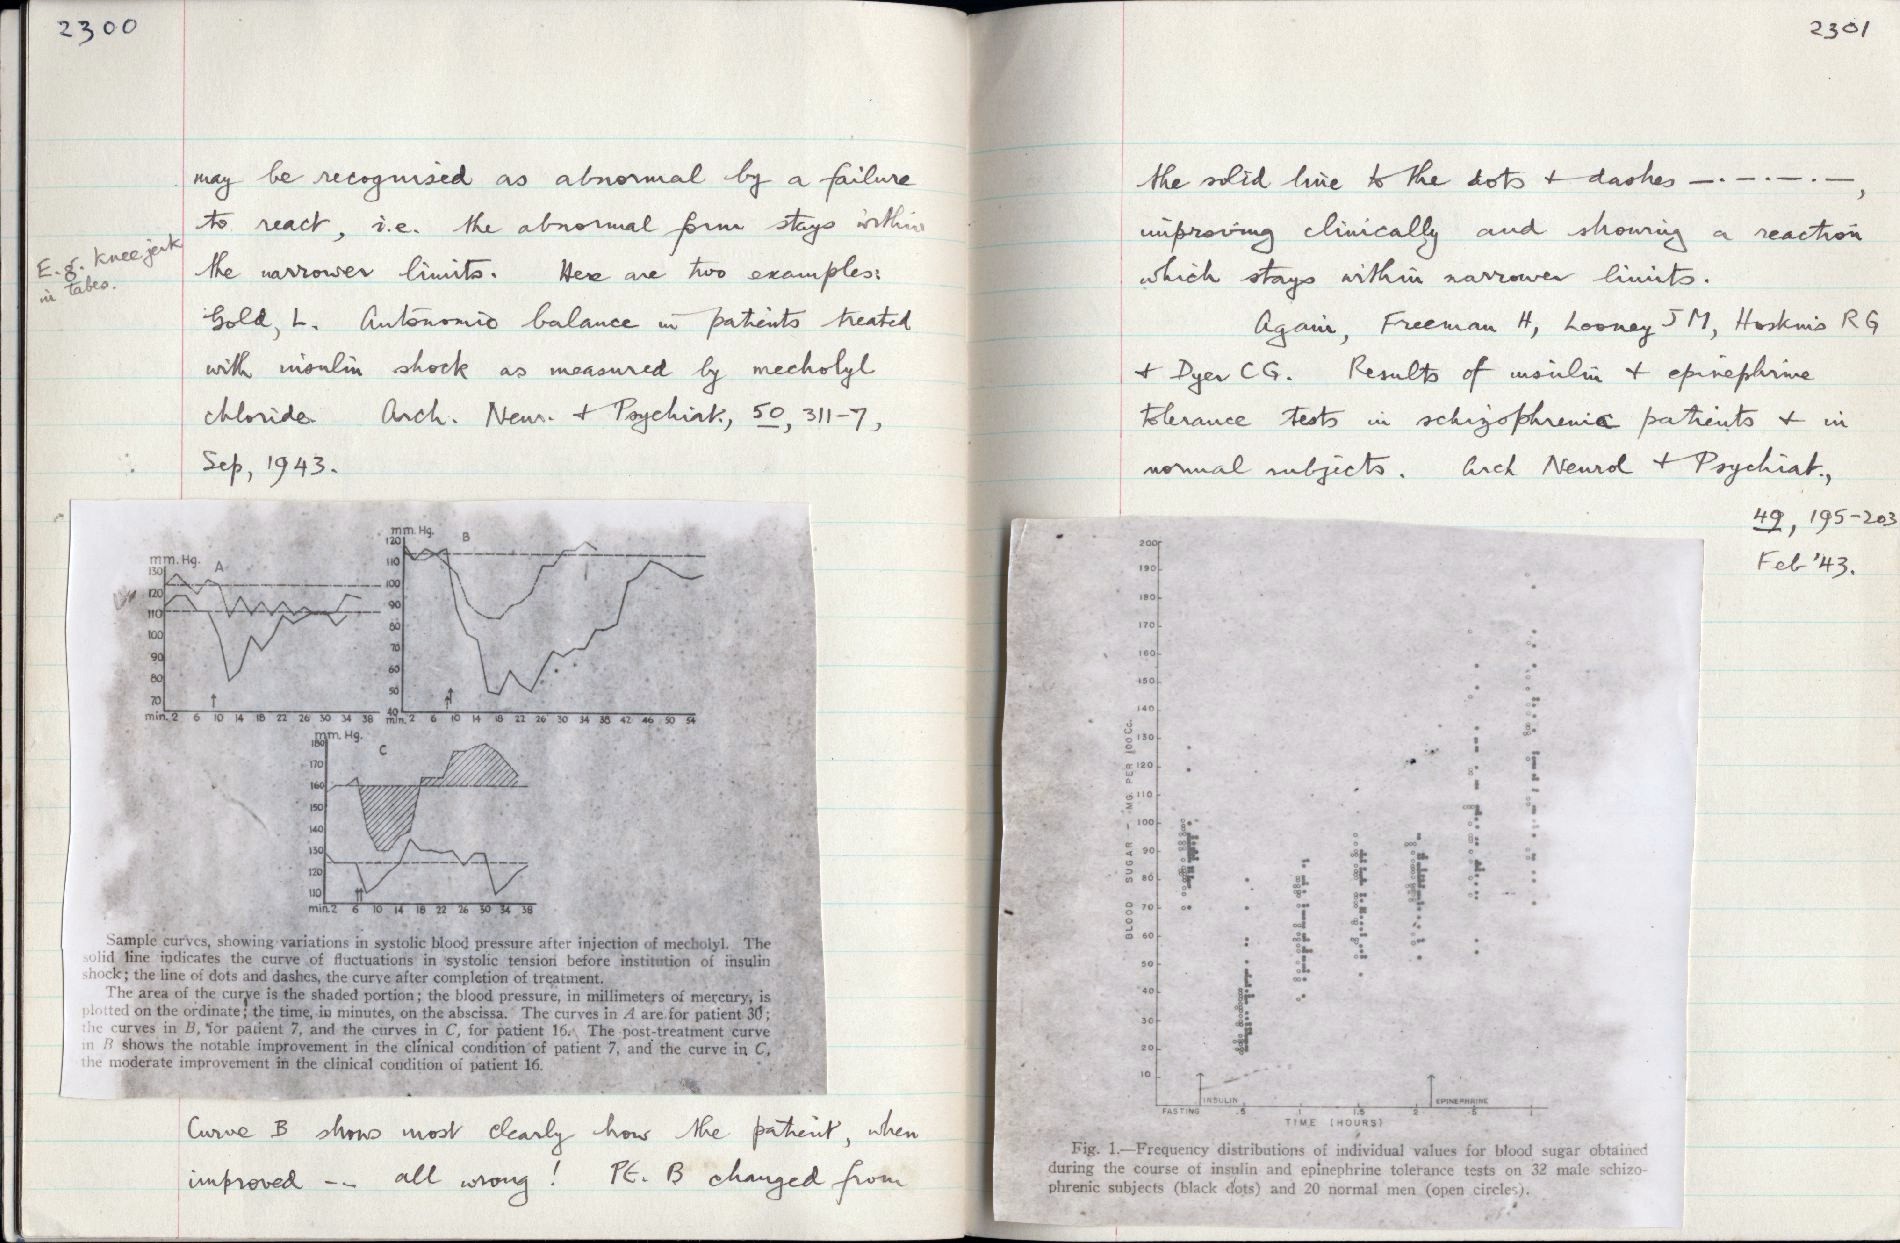 2300
may be recognised as abnormal by a failure
to react, i.e. the abnormal form stays within
the narrower limits. Here are two examples:
E.g. knee jerk
in tabes.
Gold, L. Autonomic balance in patients treated
with insulin shock as measured by mecholyl
chloride. Arch. Neur. + Psychiat., 50, 311-7,
Sep, 1943.
mm. Hg. A
130
120
110
100
90
80
70
min. 2 6 10 14 18 22 26 30 34 38
mm. Hg. B
120
110
100
90
80
70
60
50
40
min. 2 6 10 14 18 22 26 30 34 38 42 46 50 54
mm. Hg. C
180
170
160
150
140
130
120
110
min. 2 6 10 14 18 22 26 30 34 38
Sample curves, showing variations in systolic blood pressure after injection of mecholyl. The
solid line indicates the curve of fluctuations in systolic tension before institution of insulin
shock; the line of dots and dashes, the curve after completion of treatment.
The area of the curve is the shaded portion; the blood pressure, in millimeters of mercury, is
plotted on the ordinate; the time, in minutes, on the abscissa. The curves in A are for patient 30;
the curves in B, for patient 7, and the curves in C, for patient 16. The post-treatment curve
in B shows the notable improvement in the clinical condition of patient 7, and the curve in C,
the moderate improvement in the clinical condition of patient 16.
Curve B shows most clearly how the patient, when
improved -- all wrong! Pt. B changed from
2301
the solid line to the dots + dashes —·—·—·—,
improving clinically and showing a reaction
which stays within narrower limits.
Again, Freeman H, Looney J M, Hoskins R G
+ Dyer C G. Results of insulin + epinephrine
tolerance tests in schizophrenic patients + in
normal subjects. Arch Neurol + Psychiat.,
49, 195-203
Feb '43.
BLOOD SUGAR - MG. PER 100 Cc.
200
190
180
170
160
150
140
130
120
110
100
90
80
70
60
50
40
30
20
10
FASTING INSULIN .5 1 1.5 2 EPINEPHRINE .5 1
TIME (HOURS)
Fig. 1.—Frequency distributions of individual values for blood sugar obtained
during the course of insulin and epinephrine tolerance tests on 32 male schizo-
phrenic subjects (black dots) and 20 normal men (open circles).